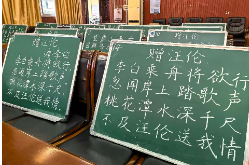 赠汪伦
李白乘舟将欲行
忽闻岸上踏歌声
桃花潭水深千尺
不及汪伦送我情
赠汪伦
李白乘舟将欲行
忽闻岸上踏歌声
桃花潭水深千尺
不及汪伦送我情